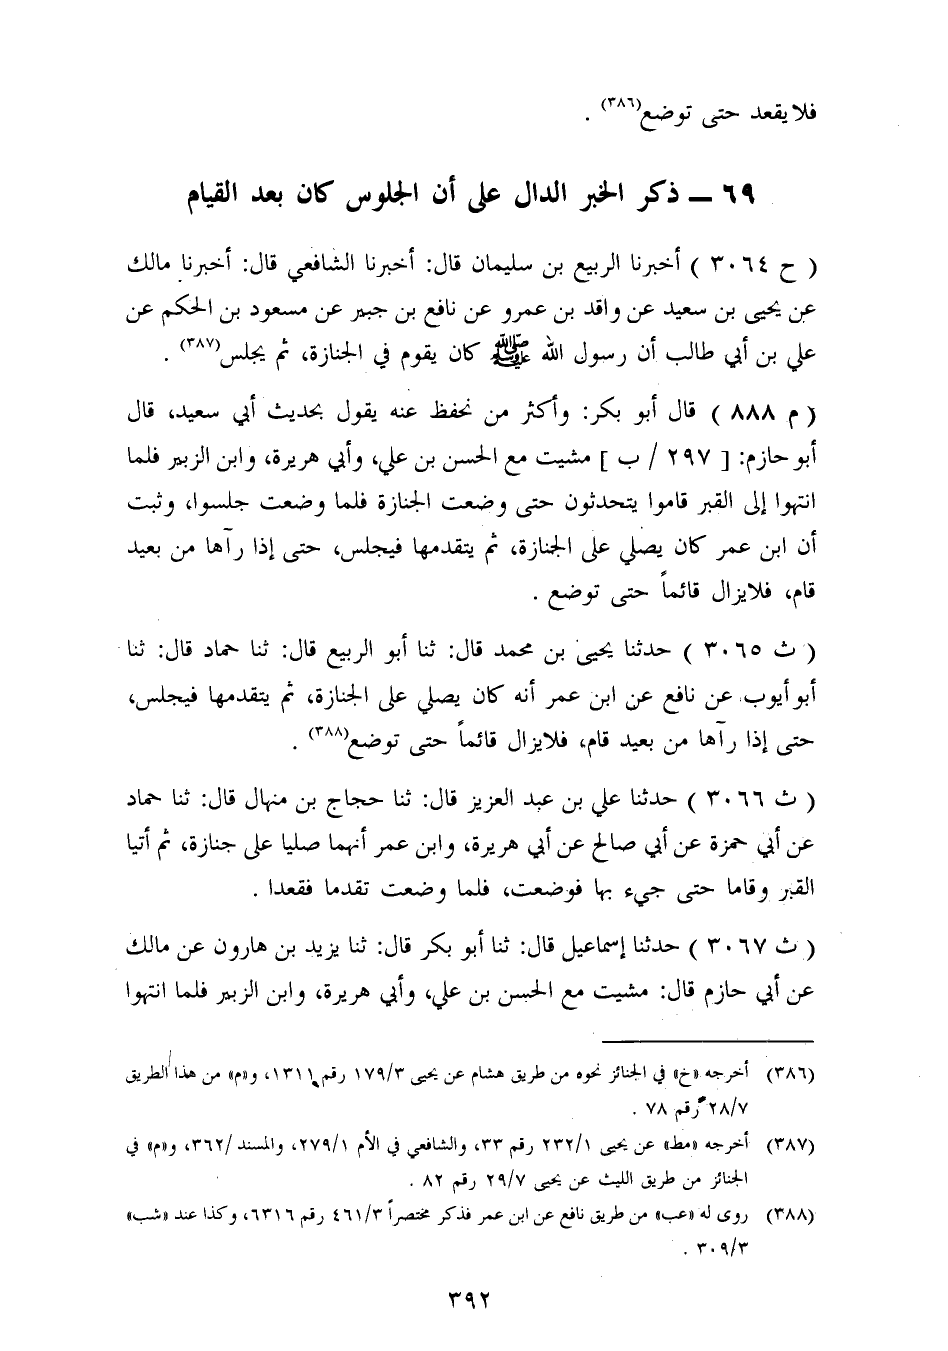 فلا يقعد حتى توضع(٣٨٦) .
٦٩ ــ ذكر الخبر الدال على أن الجلوس كان بعد القيام
( ح ٣٠٦٤ ) أخبرنا الربيع بن سليمان قال: أخبرنا الشافعي قال: أخبرنا مالك
عن يحيى بن سعيد عن واقد بن عمرو عن نافع بن جبير عن مسعود بن الحكم عن
علي بن أبي طالب أن رسول الله ﷺ كان يقوم في الجنازة، ثم يجلس(٣٨٧) .
( م ٨٨٨ ) قال أبو بكر: وأكثر من نحفظ عنه يقول بحديث أبي سعيد، قال
أبو حازم: [ ٢٩٧ / ب ] مشيت مع الحسن بن علي، وأبي هريرة، وابن الزبير فلما
انتهوا إلى القبر قاموا يتحدثون حتى وضعت الجنازة فلما وضعت جلسوا، وثبت
أن ابن عمر كان يصلي على الجنازة، ثم يتقدمها فيجلس، حتى إذا رآها من بعيد
قام، فلايزال قائماً حتى توضع .
( ث ٣٠٦٥ ) حدثنا يحيى بن محمد قال: ثنا أبو الربيع قال: ثنا حماد قال: ثنا
أبو أيوب عن نافع عن ابن عمر أنه كان يصلي على الجنازة، ثم يتقدمها فيجلس،
حتى إذا رآها من بعيد قام، فلايزال قائماً حتى توضع(٣٨٨) .
( ث ٣٠٦٦ ) حدثنا علي بن عبد العزيز قال: ثنا حجاج بن منهال قال: ثنا حماد
عن أبي حمزة عن أبي صالح عن أبي هريرة، وابن عمر أنهما صليا على جنازة، ثم أتيا
القبر وقاما حتى جيء بها فوضعت، فلما وضعت تقدما فقعدا .
( ث ٣٠٦٧ ) حدثنا إسماعيل قال: ثنا أبو بكر قال: ثنا يزيد بن هارون عن مالك
عن أبي حازم قال: مشيت مع الحسن بن علي، وأبي هريرة، وابن الزبير فلما انتهوا
(٣٨٦) أخرجه «خ» في الجنائز نحوه من طريق هشام عن يحيى ١٧٩/٣ رقم ١٣١١، و«م» من هذا الطريق
٢٨/٧ رقم ٧٨ .
(٣٨٧) أخرجه «مط» عن يحيى ٢٣٢/١ رقم ٣٣، والشافعي في الأم ٢٧٩/١، والمسند /٣٦٢، و«م» في
الجنائز من طريق الليث عن يحيى ٢٩/٧ رقم ٨٢ .
(٣٨٨) روى له «عب» من طريق نافع عن ابن عمر فذكر مختصراً ٤٦١/٣ رقم ٦٣١٦، وكذا عند «شب»
٣٠٩/٣ .
٣٩٢